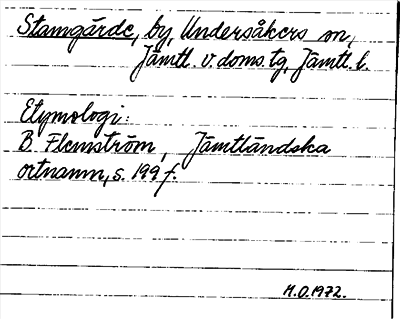 Stamgärde, by, Undersåkers sn,
Jämtl. v. doms. tg, Jämtl. l.
Etymologi:
B. Flemström, Jämtländska
ortnamn, s. 199 f.
M.O.1972.